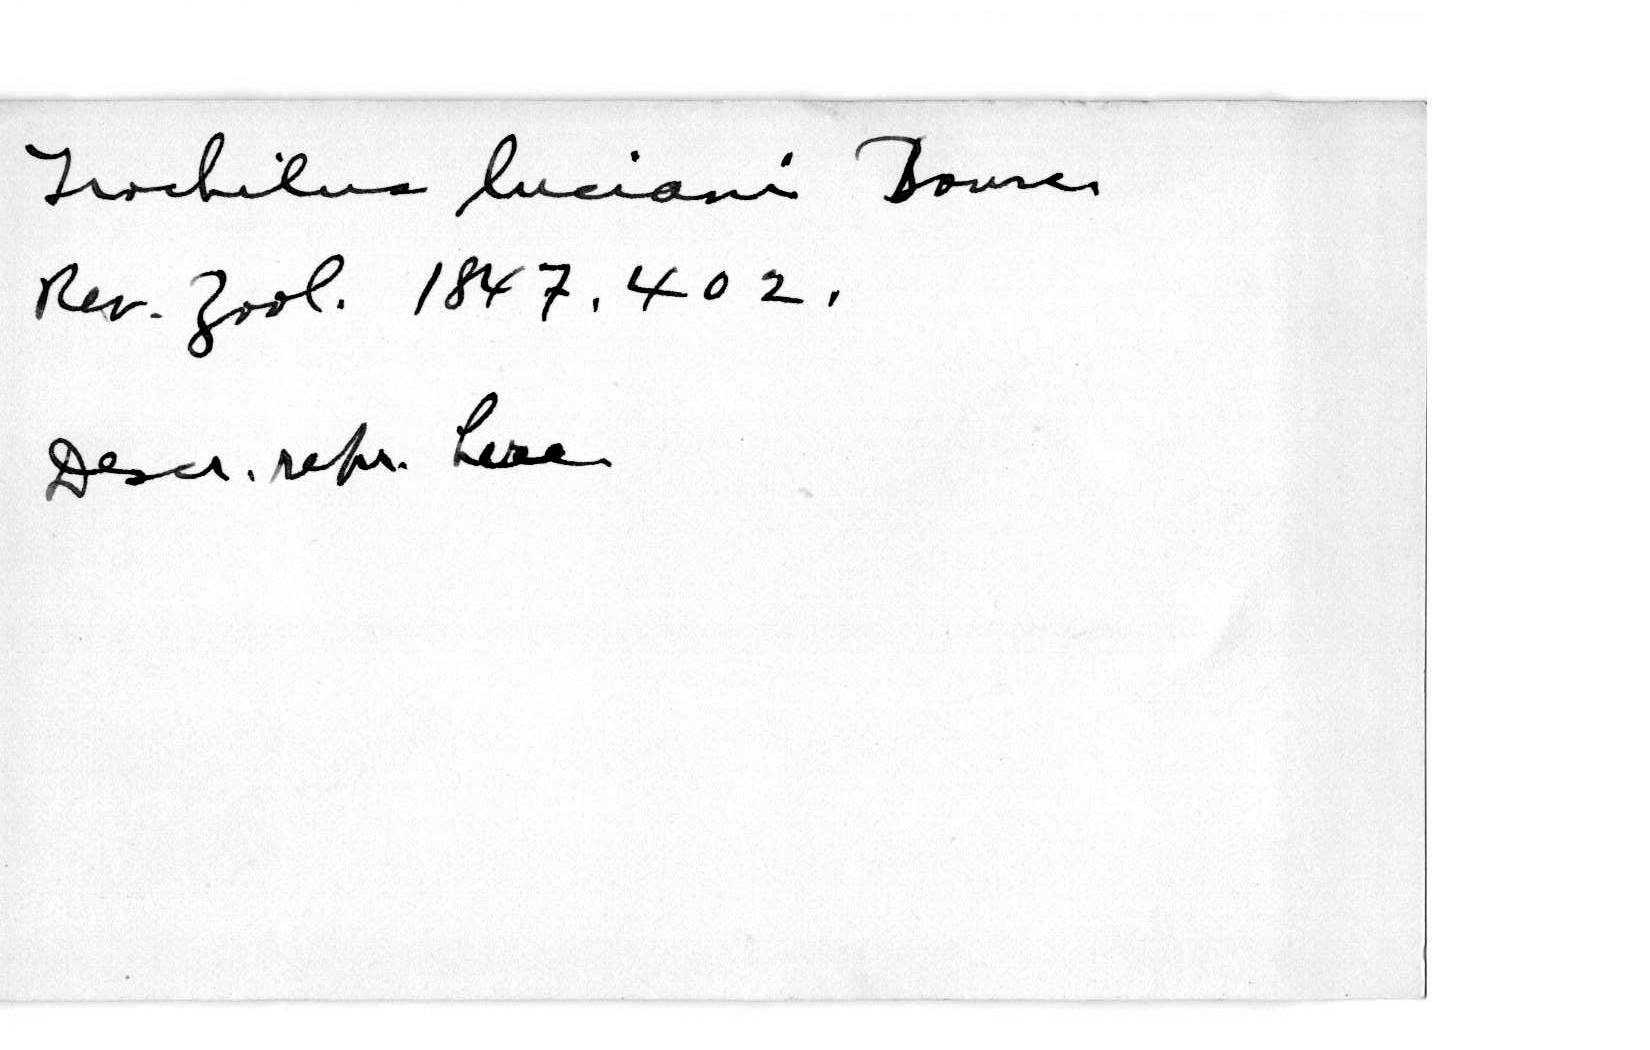 Trochilus luciani Bourc.
Rev. Zool. 1847, 402.
Descr. repr. here